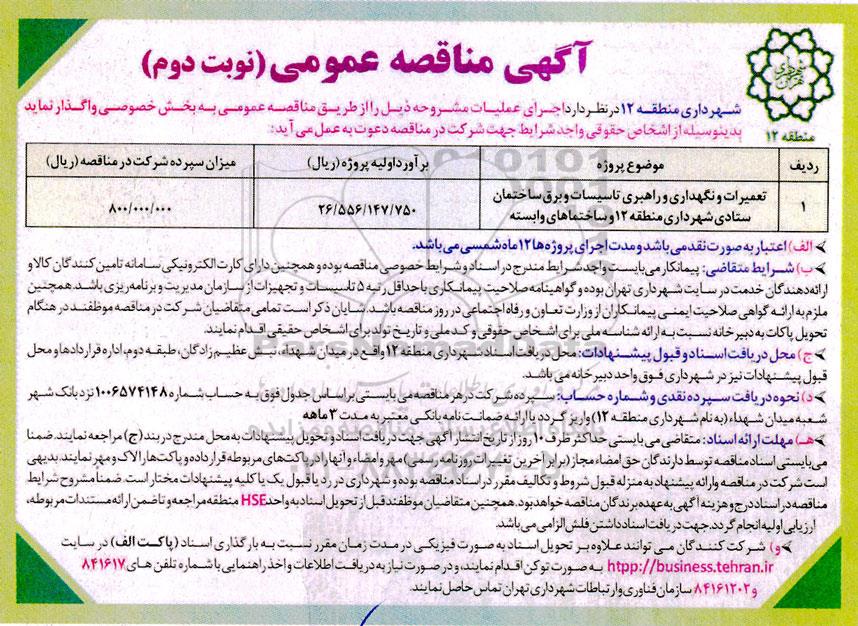 آگهی مناقصه عمومی (نوبت دوم)
شهرداری تهران
منطقه ۱۲
شهرداری منطقه ۱۲ در نظر دارد اجرای عملیات مشروحه ذیل را از طریق مناقصه عمومی به بخش خصوصی واگذار نماید
بدینوسیله از اشخاص حقوقی واجد شرایط جهت شرکت در مناقصه دعوت به عمل می آید:
ردیف موضوع پروژه برآورد اولیه پروژه (ریال) میزان سپرده شرکت در مناقصه (ریال)
۱ تعمیرات و نگهداری و راهبری تاسیسات و برق ساختمان ستادی شهرداری منطقه ۱۲ و ساختماهای وابسته ۲۶/۵۵۶/۱۴۷/۷۵۰ ۸۰۰/۰۰۰/۰۰۰
الف) اعتبار به صورت نقد می باشد و مدت اجرای پروژه ها ۱۲ ماه شمسی می باشد.
ب) شرایط متقاضی: پیمانکار می بایست واجد شرایط مندرج در اسناد و شرایط خصوصی مناقصه بوده و همچنین دارای کارت الکترونیکی سامانه تامین کنندگان کالا و
ارائه دهندگان خدمت در سایت شهرداری تهران بوده و گواهینامه صلاحیت پیمانکاری با حداقل رتبه ۵ تاسیسات و تجهیزات از سازمان مدیریت و برنامه ریزی باشد. همچنین
ملزم به ارائه گواهی صلاحیت ایمنی پیمانکاران از وزارت تعاون و رفاه اجتماعی در روز مناقصه باشد. شایان ذکر است تمامی متقاضیان شرکت در مناقصه موظفند در هنگام
تحویل پاکات به دبیرخانه نسبت به ارائه شناسه ملی برای اشخاص حقوقی و کد ملی و تاریخ تولد برای اشخاص حقیقی اقدام نمایند.
ج) محل دریافت اسناد و قبول پیشنهادات: محل دریافت اسناد شهرداری منطقه ۱۲ واقع در میدان شهداء، نبش عظیم زادگان، طبقه دوم، اداره قراردادها و محل
قبول پیشنهادات نیز در شهرداری فوق واحد دبیرخانه می باشد.
د) نحوه دریافت سپرده نقدی و شماره حساب: سپرده شرکت در هر مناقصه می بایستی براساس جدول فوق به حساب شماره ۱۰۰۶۵۷۴۱۴۸ نزد بانک شهر
شعبه میدان شهداء (به نام شهرداری منطقه ۱۲) واریز گردد یا ارائه ضمانت نامه بانکی معتبر به مدت ۳ ماهه
هـ) مهلت ارائه اسناد: متقاضی می بایستی حداکثر ظرف ۱۰ روز از تاریخ انتشار آگهی جهت دریافت اسناد و تحویل پیشنهادات به محل مندرج در بند (ج) مراجعه نمایند. ضمنا
می بایستی اسناد مناقصه توسط دارندگان حق امضاء مجاز (برابر آخرین تغییرات روزنامه رسمی) مهر و امضاء و آنها را در پاکت های مربوطه قرار داده و پاکت ها را لاک و مهر نمایند. بدیهی
است شرکت در مناقصه و ارائه پیشنهاد به منزله قبول شروط و تکالیف مقرر در اسناد مناقصه بوده و شهرداری در رد یا قبول یک یا کلیه پیشنهادات مختار است. ضمنا مشروح شرایط
مناقصه در اسناد درج و هزینه آگهی به عهده برندگان مناقصه خواهد بود. همچنین متقاضیان موظفند قبل از تحویل اسناد به واحد HSE منطقه مراجعه و تا ضمن ارائه مستندات مربوطه،
ارزیابی اولیه انجام گردد. جهت دریافت اسناد داشتن فلش الزامی می باشد.
و) شرکت کنندگان می توانند علاوه بر تحویل اسناد به صورت فیزیکی در مدت زمان مقرر نسبت به بارگذاری اسناد (پاکت الف) در سایت
htpp://business.tehran.ir به صورت توکن اقدام نمایند، و در صورت نیاز به دریافت اطلاعات و اخذ راهنمایی با شماره تلفن های ۸۴۱۶۱۷
و ۸۴۱۶۱۲۰۲ سازمان فناوری و ارتباطات شهرداری تهران تماس حاصل نمایند.